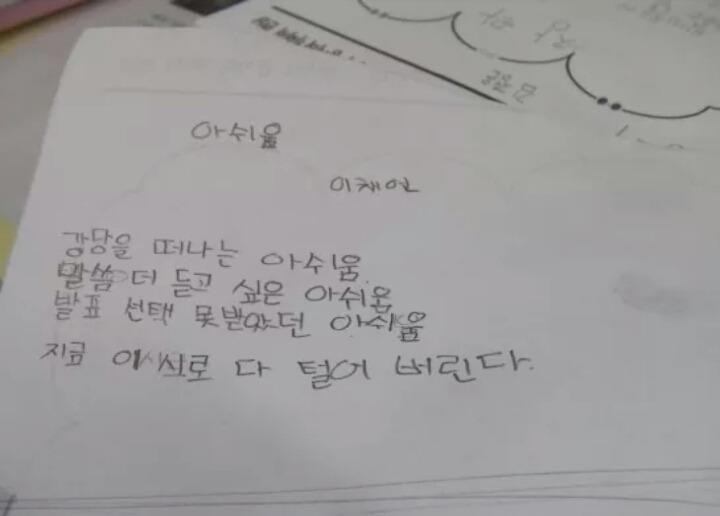 아쉬움
이채언
강당을 떠나는 아쉬움
말씀 더 듣고 싶은 아쉬움
발표 선택 못받았던 아쉬움
지금 이 시로 다 털어 버린다.